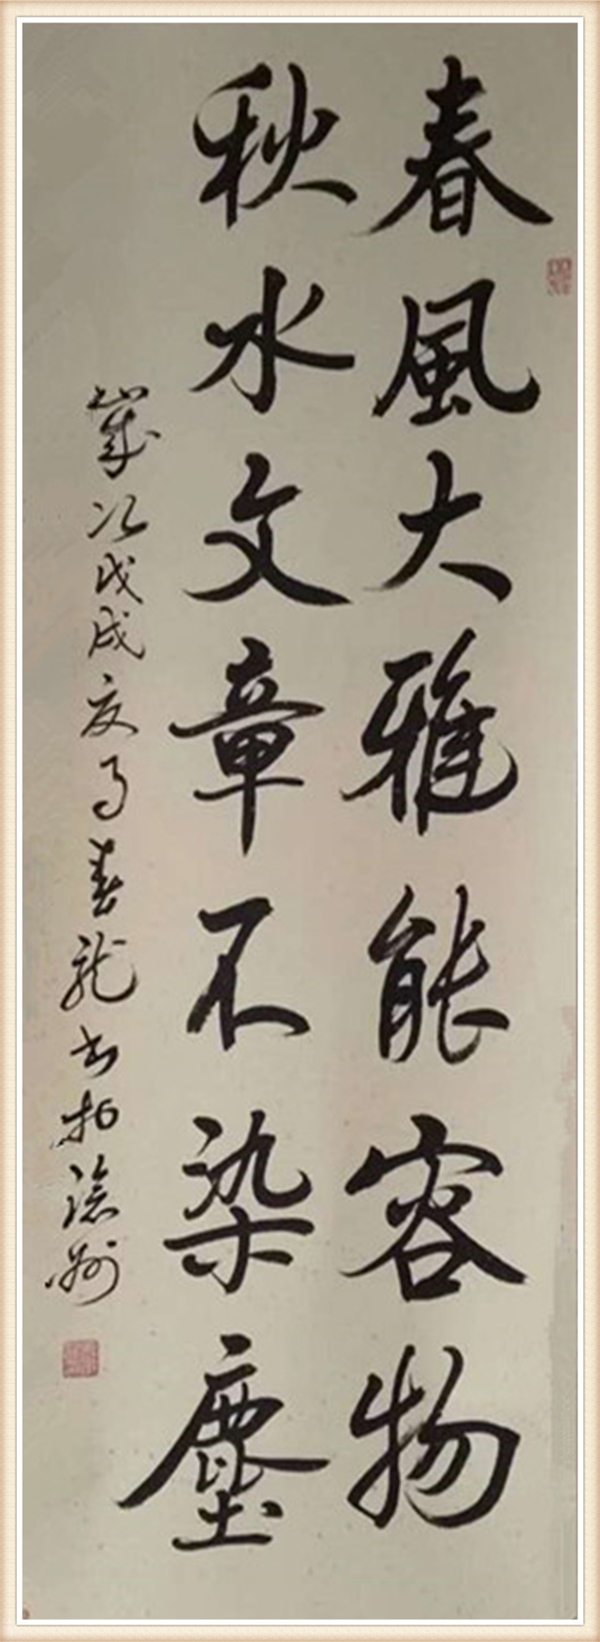 春風大雅能容物
秋水文章不染塵
歲次戊戌夏月春龍书於滄州